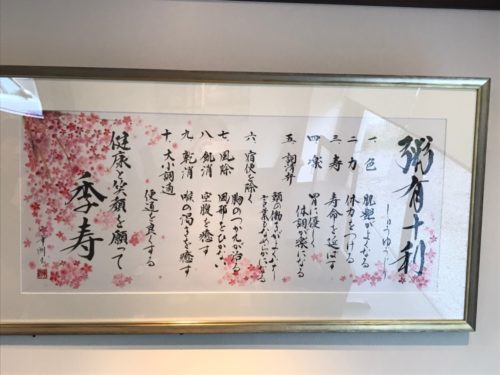 粥有十利
しゅうゆうじり
一 色
肌艶がよくなる
二 力
体力をつける
三 寿
寿命を延ばす
四 楽
胃に優しく
体調が楽になる
五 詞清弁
頭の働きがよくなり
言葉もなめらかになる
六 宿便を除く
胸のつかえが治る
七 風除
風邪をひかない
八 飢消
空腹を癒す
九 乾消
喉の渇きを癒す
十 大小調適
便通を良くする
健康と笑顔を願って
季寿